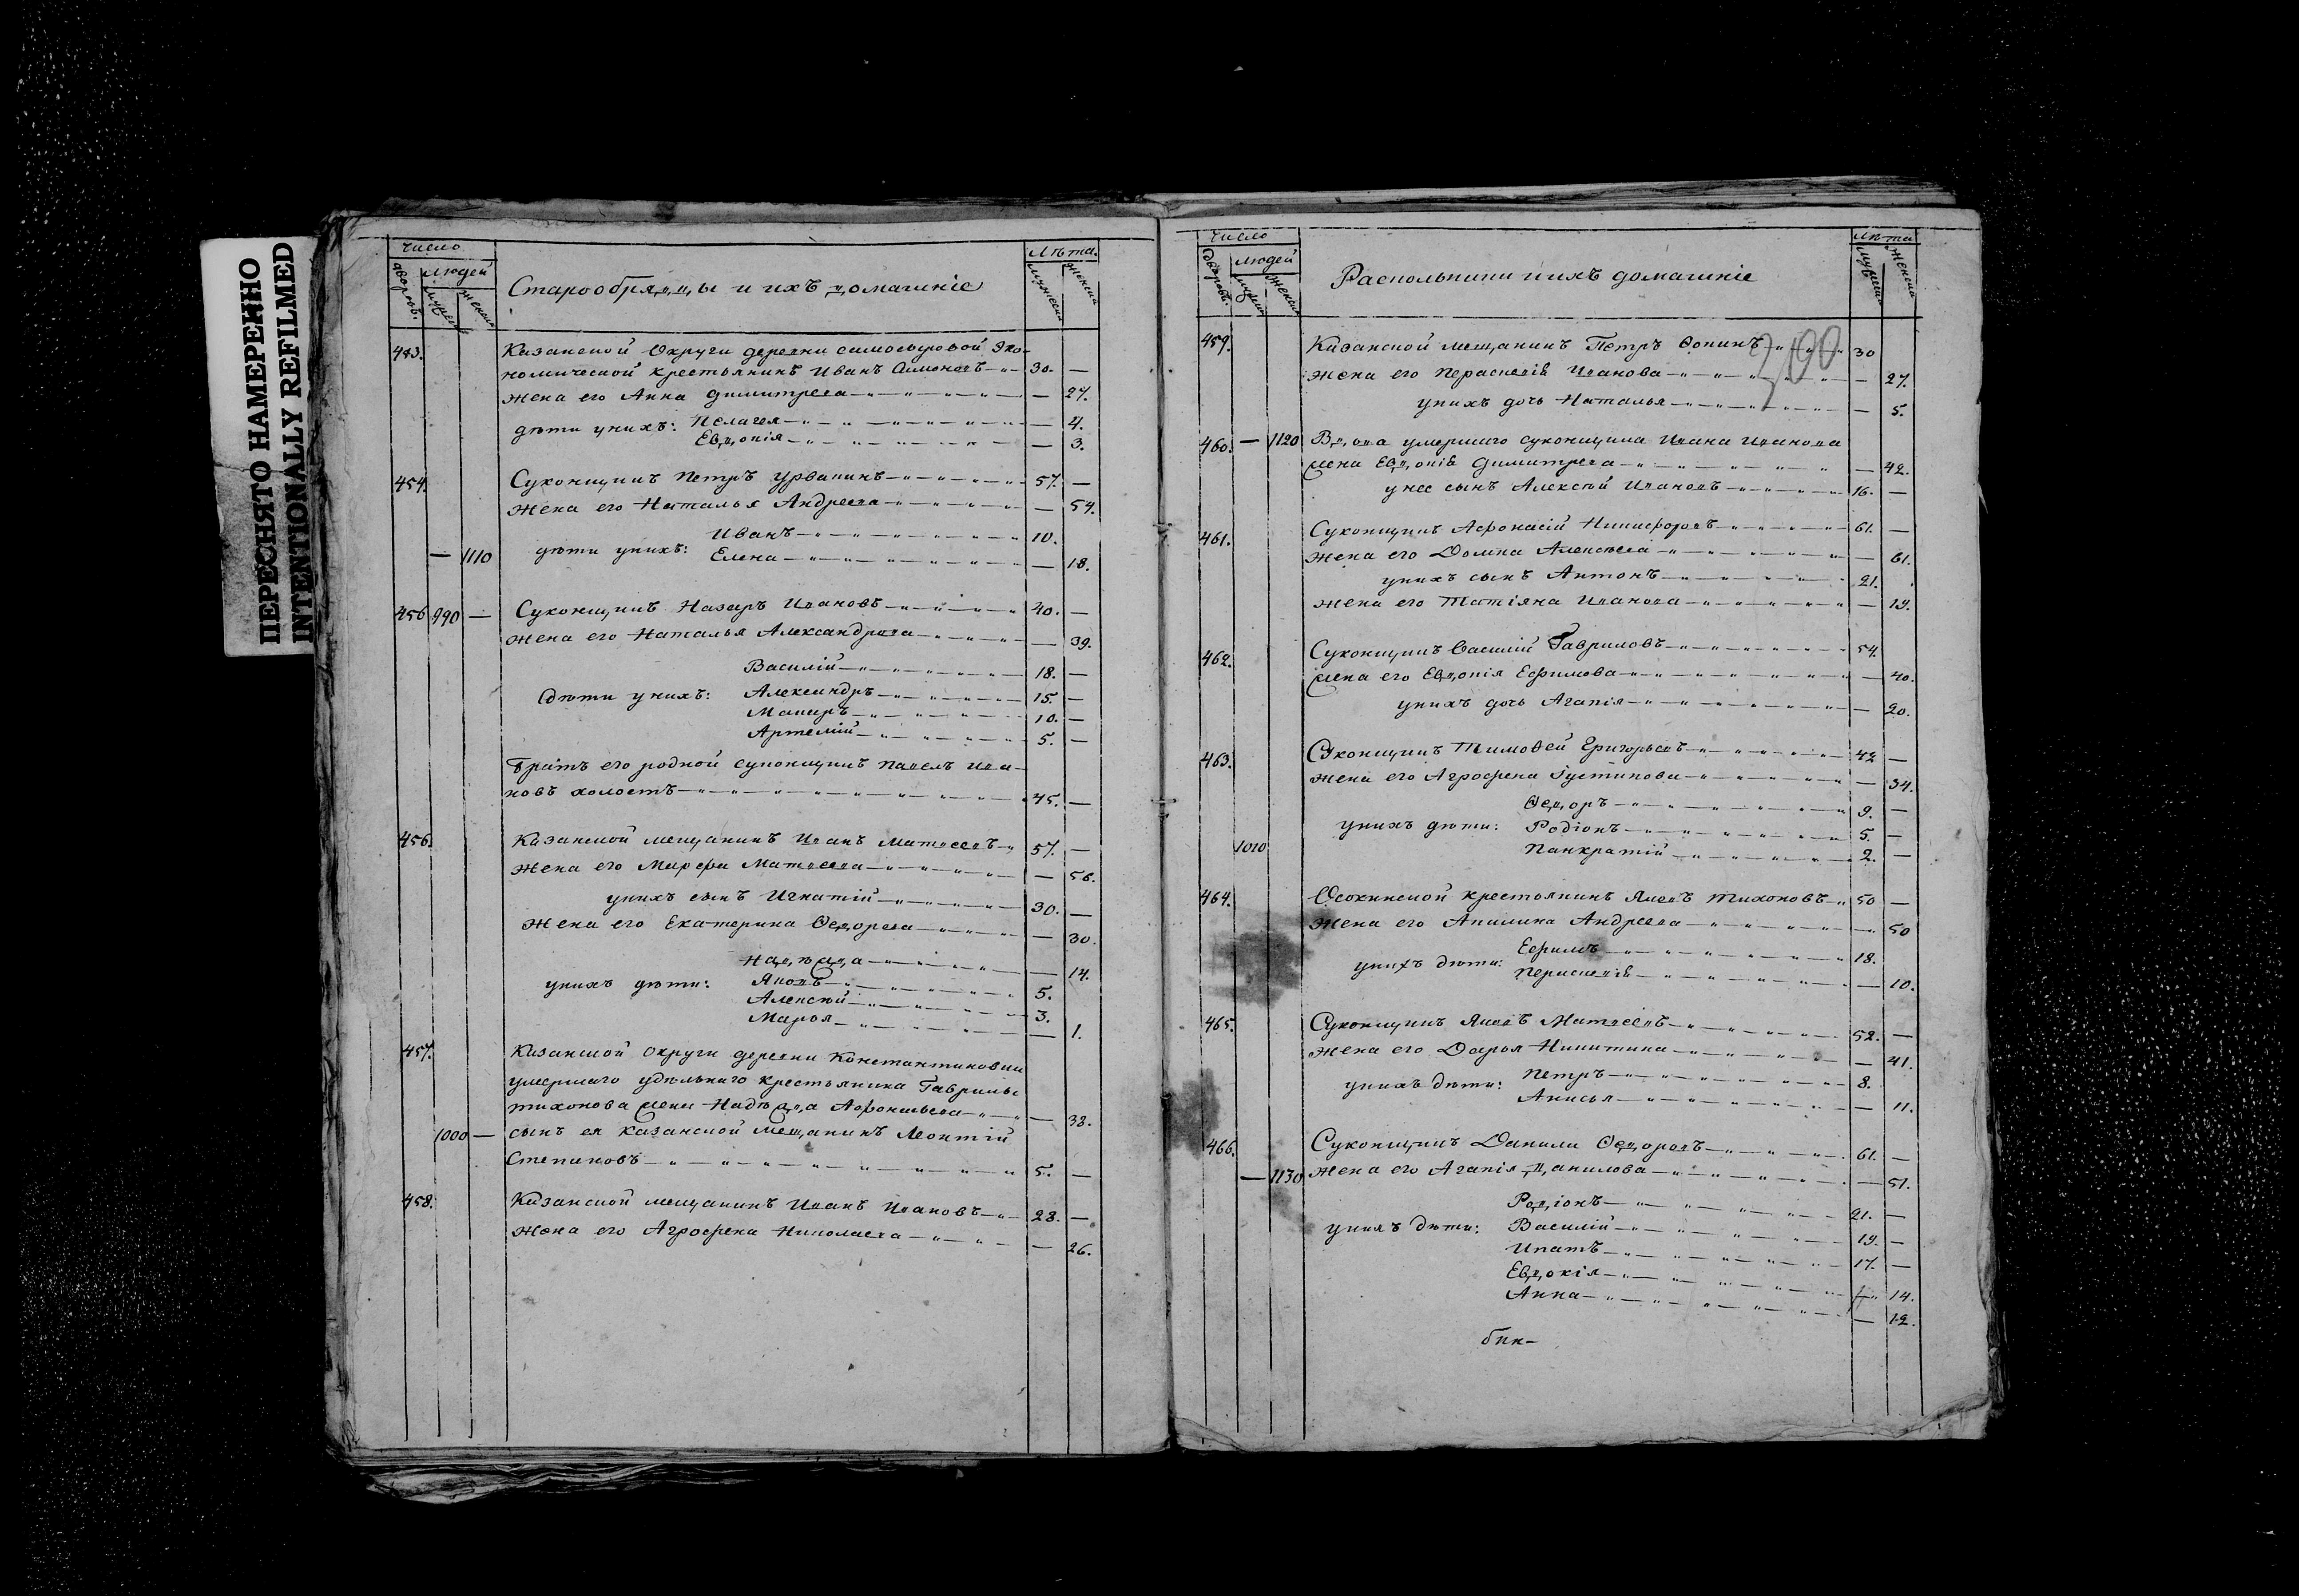 ПЕРЕСНЯТО НАМЕРЕННО
INTENTIONALLY REFILMED
Число Лѣта.
дворовъ. людей мужеска женска Старообрядцы и ихъ домашніе мужеска женска
453. Казанской Округи деревни самосыровой Эко-
номической крестьянинъ Иванъ Симоновъ 30. —
жена его Анна Димитрева — 27.
дѣти унихъ: Пелагея — 4.
Евдокія — 3.
454. Суконщикъ Петръ Урванинъ 57. —
жена его Наталья Андреева — 54.
Иванъ 10.
— 1110 дѣти унихъ: Елена — 18.
456 990 — Суконщикъ Назаръ Ивановъ 40. —
жена его Наталья Александрова — 39.
Василій 18. —
Дѣти унихъ: Александръ 15. —
Макаръ 10. —
Артемій 5. —
братъ его родной суконщикъ Павелъ Ива-
новъ холостъ 45. —
456. Казанской мещанинъ Иванъ Матвеевъ 57. —
жена его Марфа Матвеева — 56.
унихъ сынъ Игнатій 30. —
жена его Екатерина Ѳедорова — 30.
Надѣжда — 14.
унихъ дѣти: Яковъ 5.
Алексѣй 3.
Марья — 1.
457. Казанской Округи деревни Константиновки
умершаго удѣльнаго крестьянина Гаврилы
тихонова жена Надѣжда Афонасьева — 38.
1000 — сынъ ея казанской мещанинъ Леонтій
Степановъ 5. —
458. Казанской мещанинъ Иванъ Ивановъ 28. —
жена его Агрофена Николаева — 26.
Число Лѣта
дворовъ. людей мужеска женска Раскольники и ихъ домашніе мужеска женска
459. Казанской мещанинъ Петръ Ѳокинъ 30
жена его Парасковія Иванова — 27.
унихъ дочь Наталья — 5.
460. — 1120 Вдова умершаго суконщика Ивана Иванова
жена Евдокія Димитрева — 42.
унее сынъ Алексѣй Ивановъ 16. —
461. Суконщикъ Афонасій Никифоровъ 61. —
жена его Домна Алексѣева — 61.
унихъ сынъ Антонъ 21.
жена его Татіяна Иванова — 19.
462. Суконщикъ Василій Гавриловъ 54.
жена его Евдокія Ефимова — 40.
унихъ дочь Агапія — 20.
463. Суконщикъ Тимоѳей Григорьевъ 42 —
жена его Агрофена Густинова — 34.
Ѳедоръ 9. —
унихъ дѣти: Родіонъ 5. —
1010 Панкратій 2. —
464. Осокинской крестьянинъ Яковъ Тихоновъ 50 —
жена его Акилина Андреева — 50
Ефимъ 18.
унихъ дѣти: Парасковія — 10.
465. Суконщикъ Яковъ Матвеевъ 52. —
жена его Дарья Никитина — 41.
унихъ дѣти: Петръ 8.
Анисья — 11.
466. Суконщикъ Данила Ѳедоровъ 61. —
— 1130 жена его Агапія Данилова — 51.
Родіонъ 21. —
унихъ дѣти: Василій 19. —
Ипатъ 17. —
Евдокія — 14.
Анна — 12.